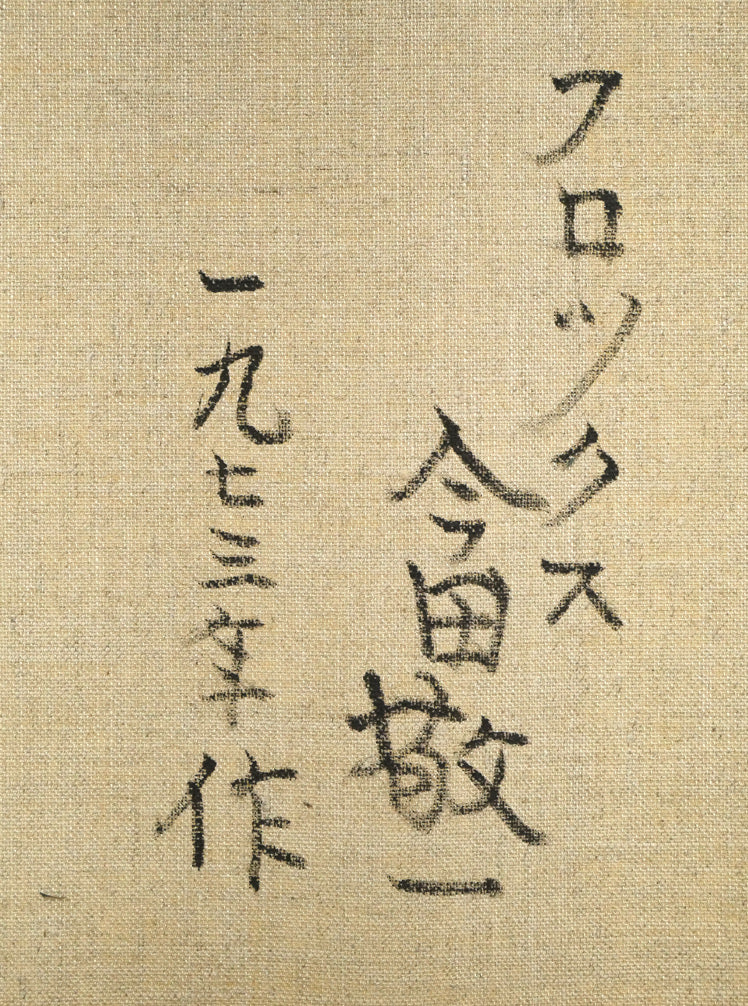 フロックス
今田敬一
一九七三年作